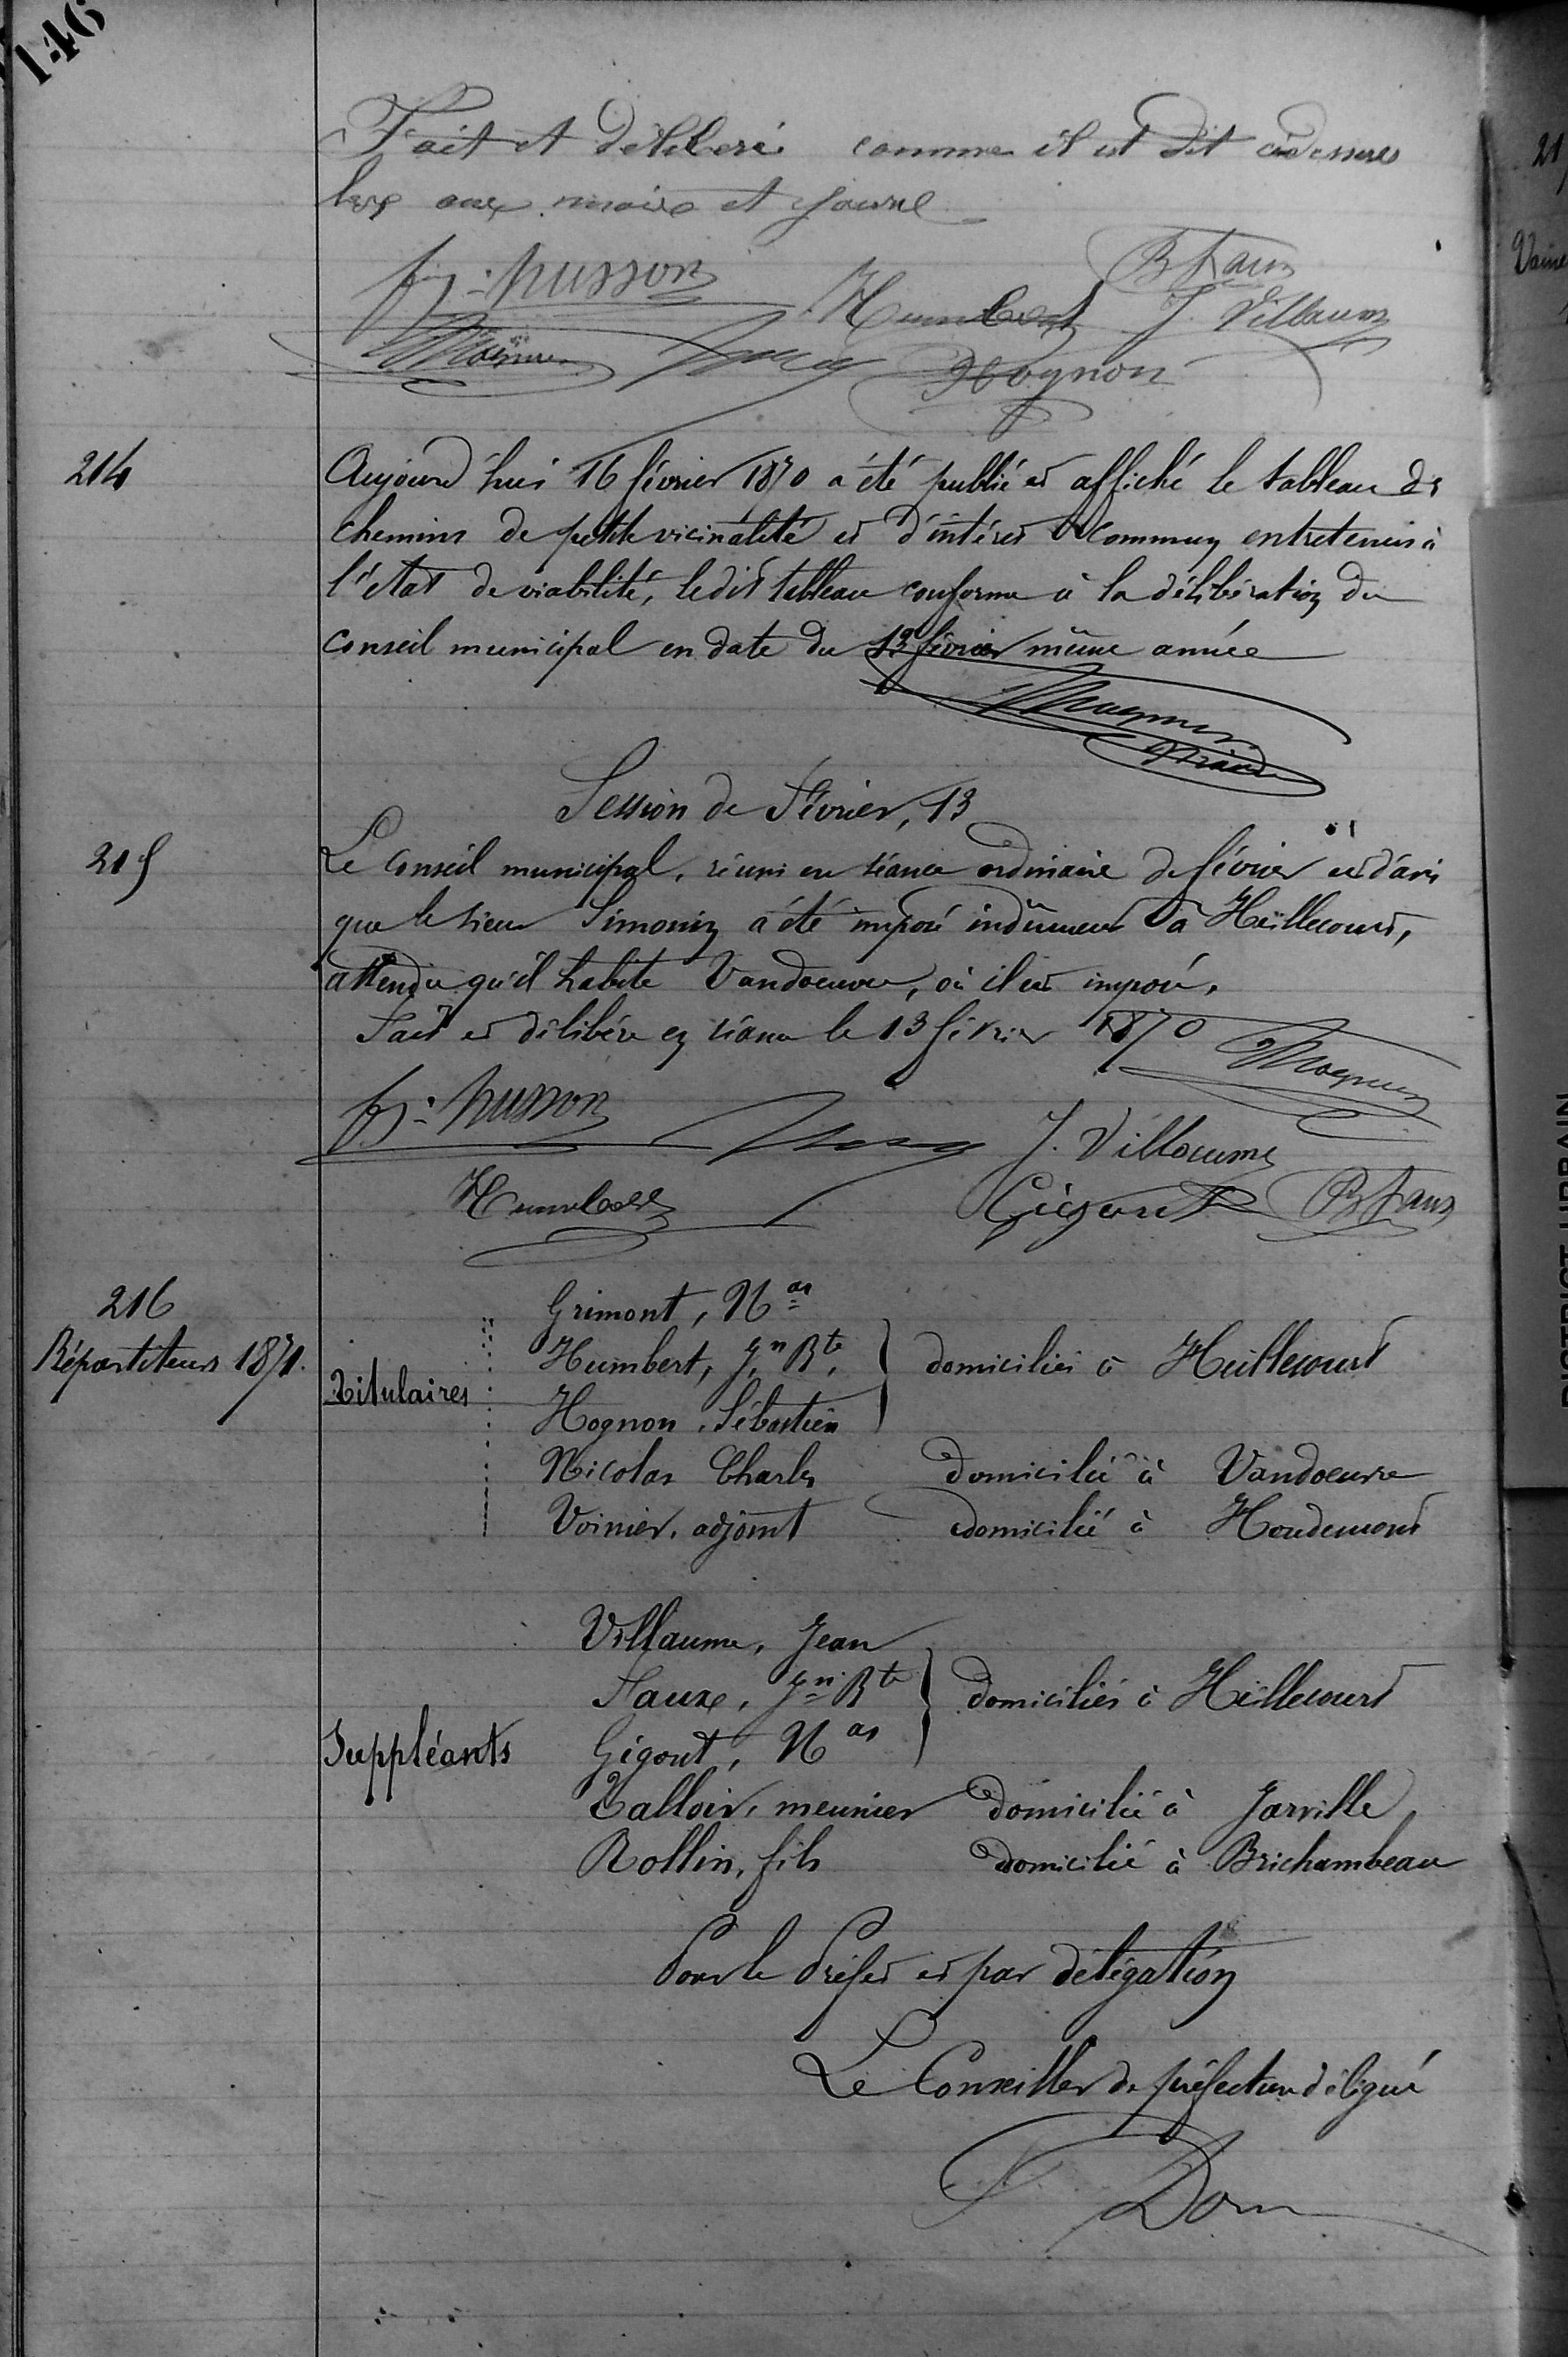 146
Fait et déliberé comme il est dit cidessus
les aux mois et
fs: husson
B faux
Humbert J. Villaum
Hognon
214
Aujourd'hui 16 février 1870 a été publié et affiché le tableau des
chemins de petite vicinalité et d'intérêt commun entretenus à
l'état de viabilité, ledit tableau conforme à la délibération du
Conseil municipal en date du 13 février même année
Session de Février, 13
215
Le Conseil municipal, réuni en séance ordinaire de février est d'avis
que le sieur Simonin a été imposé indûment à Heillecourt,
attendu qu'il habite Vandoeuvre, où il est imposé.
Fait et délibéré en séance le 13 février 1870
fs: husson
J. Villaume
Humbert
Gigout B faux
216
Répartiteurs 1871.
Titulaires
Grimont, Nas
Humbert, Jn Bte,
Hognon, Sébastien
domiciliés à Heillecourt
Nicolas Charles domicilié à Vandoeuvre
Voinier, adjoint domicilié à Houdemont
Suppléants
Villaume, Jean
Faux, Jn Bte
Gigout, Nas
domiciliés à Heillecourt
Talloir, meunier domicilié à Jarville,
Rollin, fils domicilié à Brichambeau
Pour le Préfet et par délégation
Le Conseiller de préfecture délégué
21
DISTRICT URBAIN